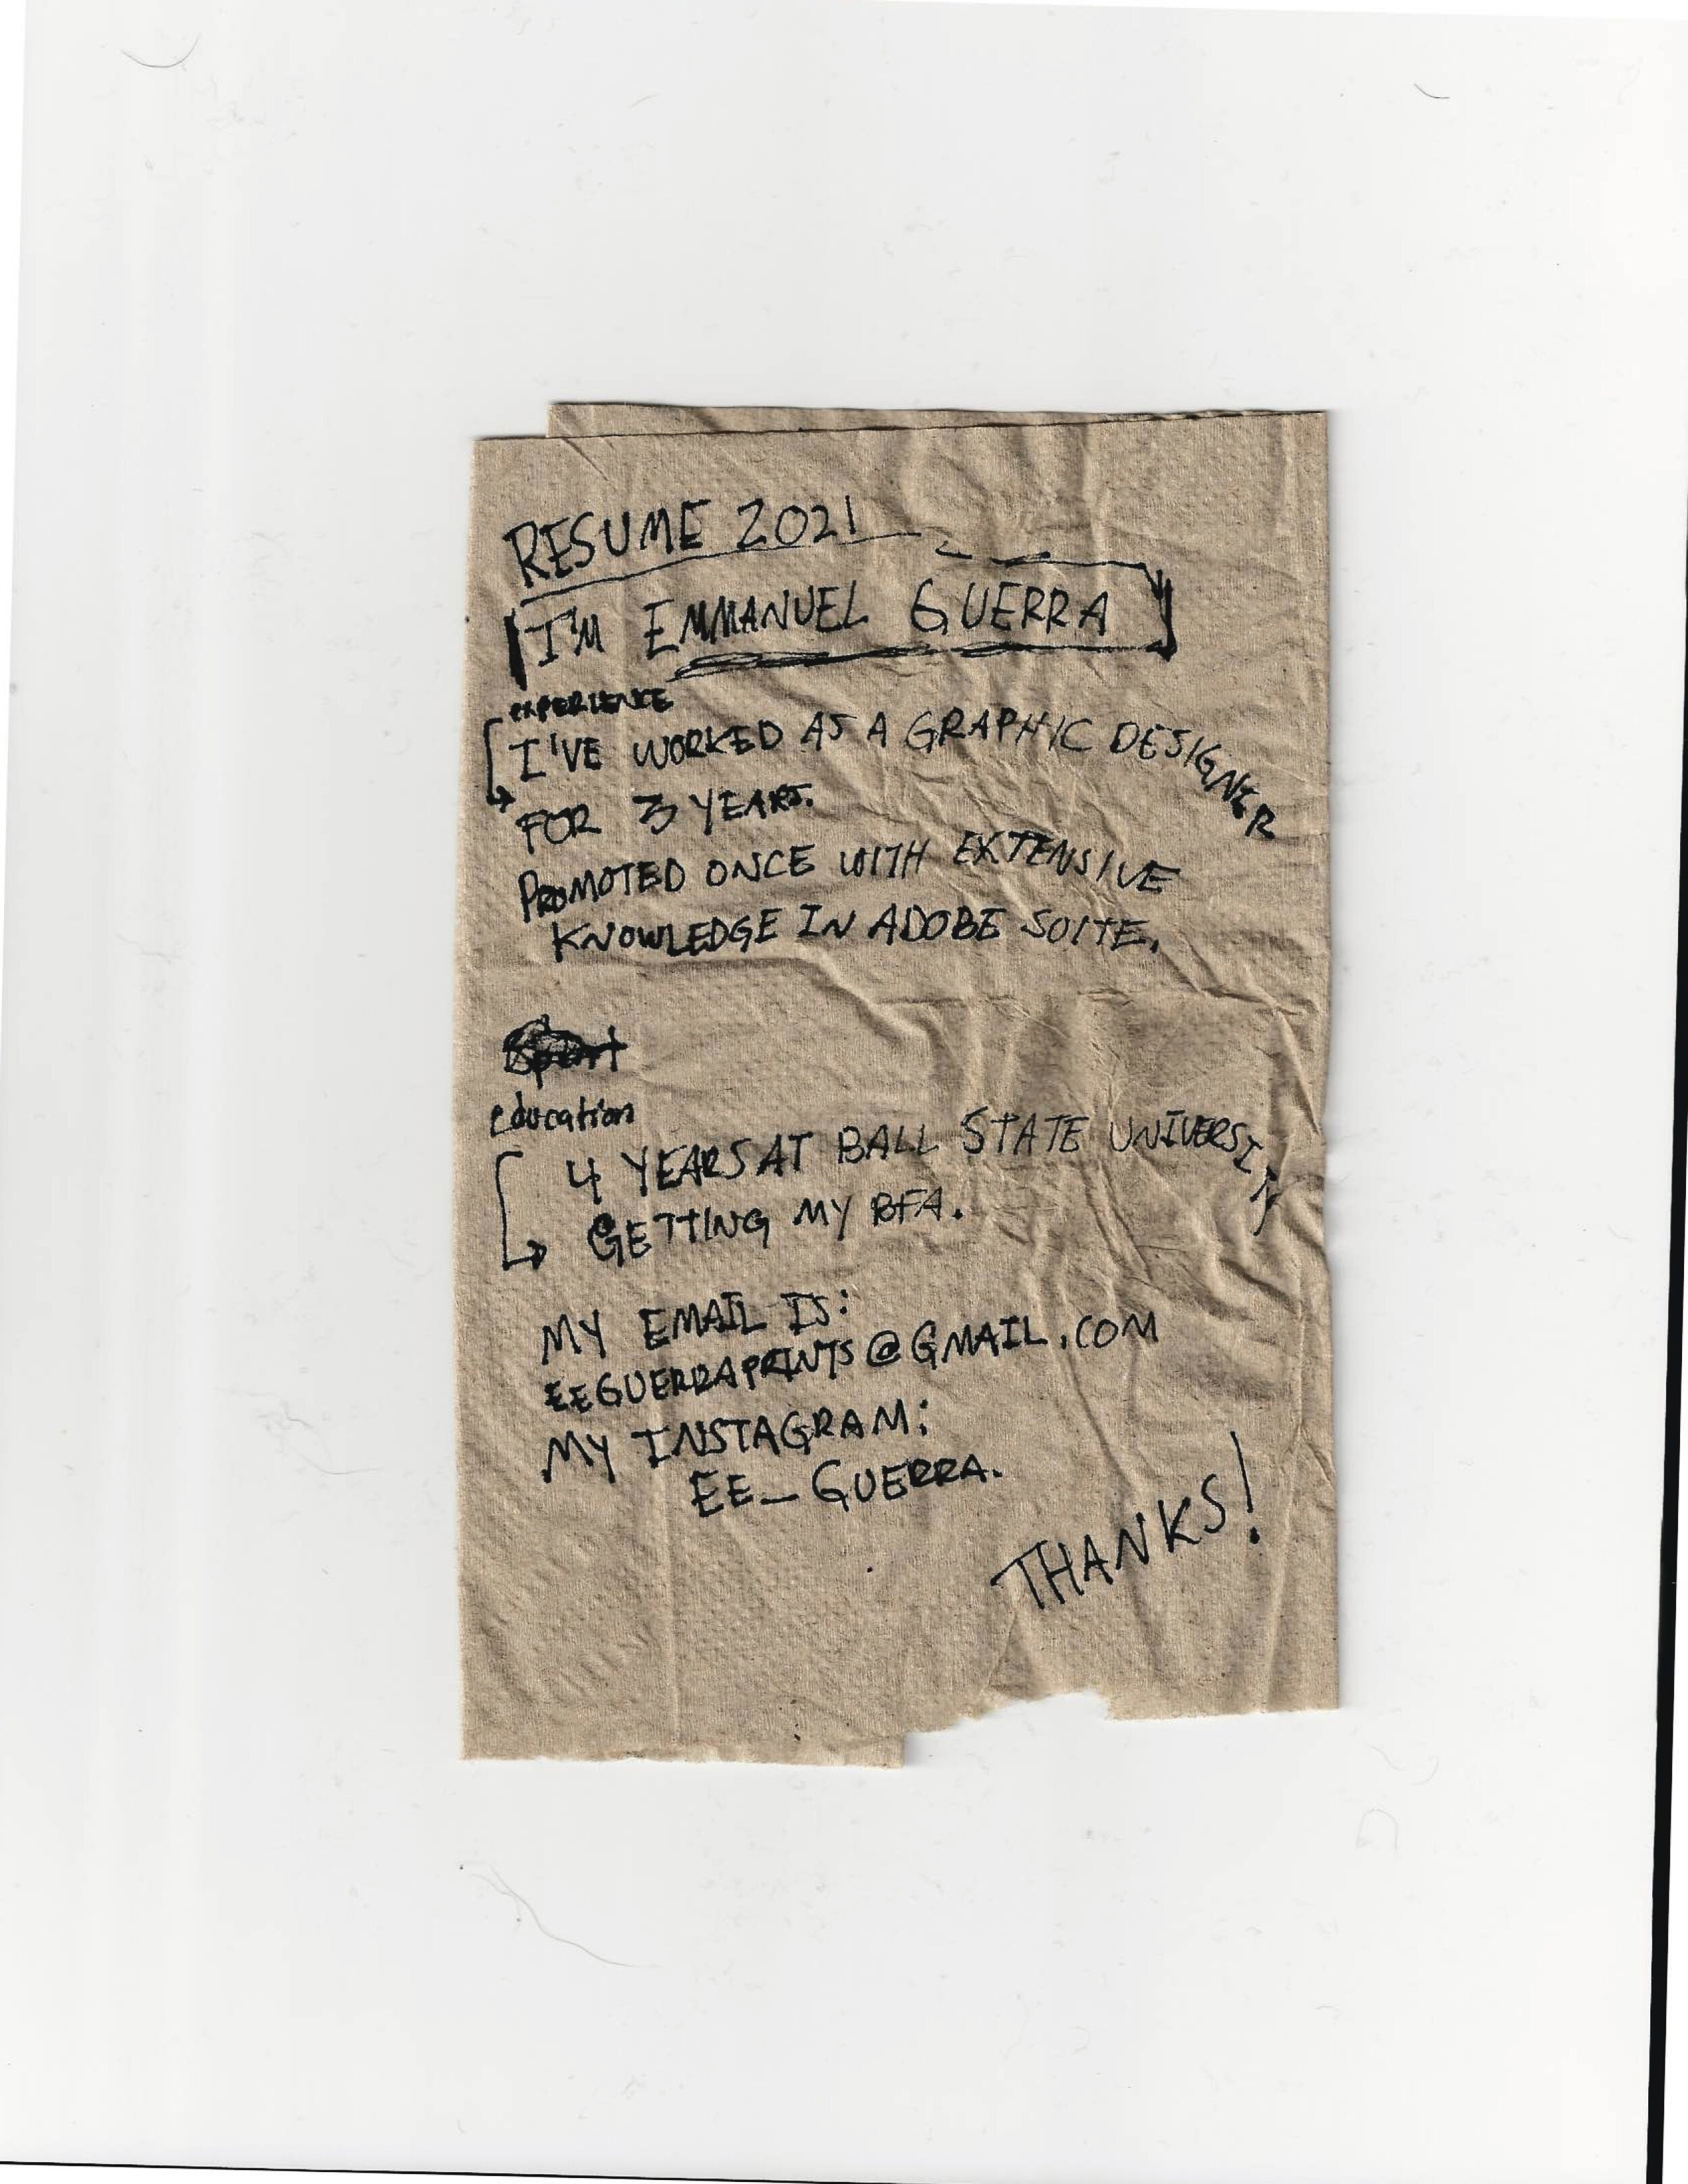 RESUME 2021
I'M EMMANUEL GUERRA
EXPERIENCE
I'VE WORKED AS A GRAPHIC DESIGNER
FOR 3 YEARS.
PROMOTED ONCE WITH EXTENSIVE
KNOWLEDGE IN ADOBE SUITE.
education
4 YEARS AT BALL STATE UNIVERSITY
GETTING MY BFA.
MY EMAIL IS:
EEGUERRAPRINTS@GMAIL.COM
MY INSTAGRAM:
EE_GUERRA.
THANKS!